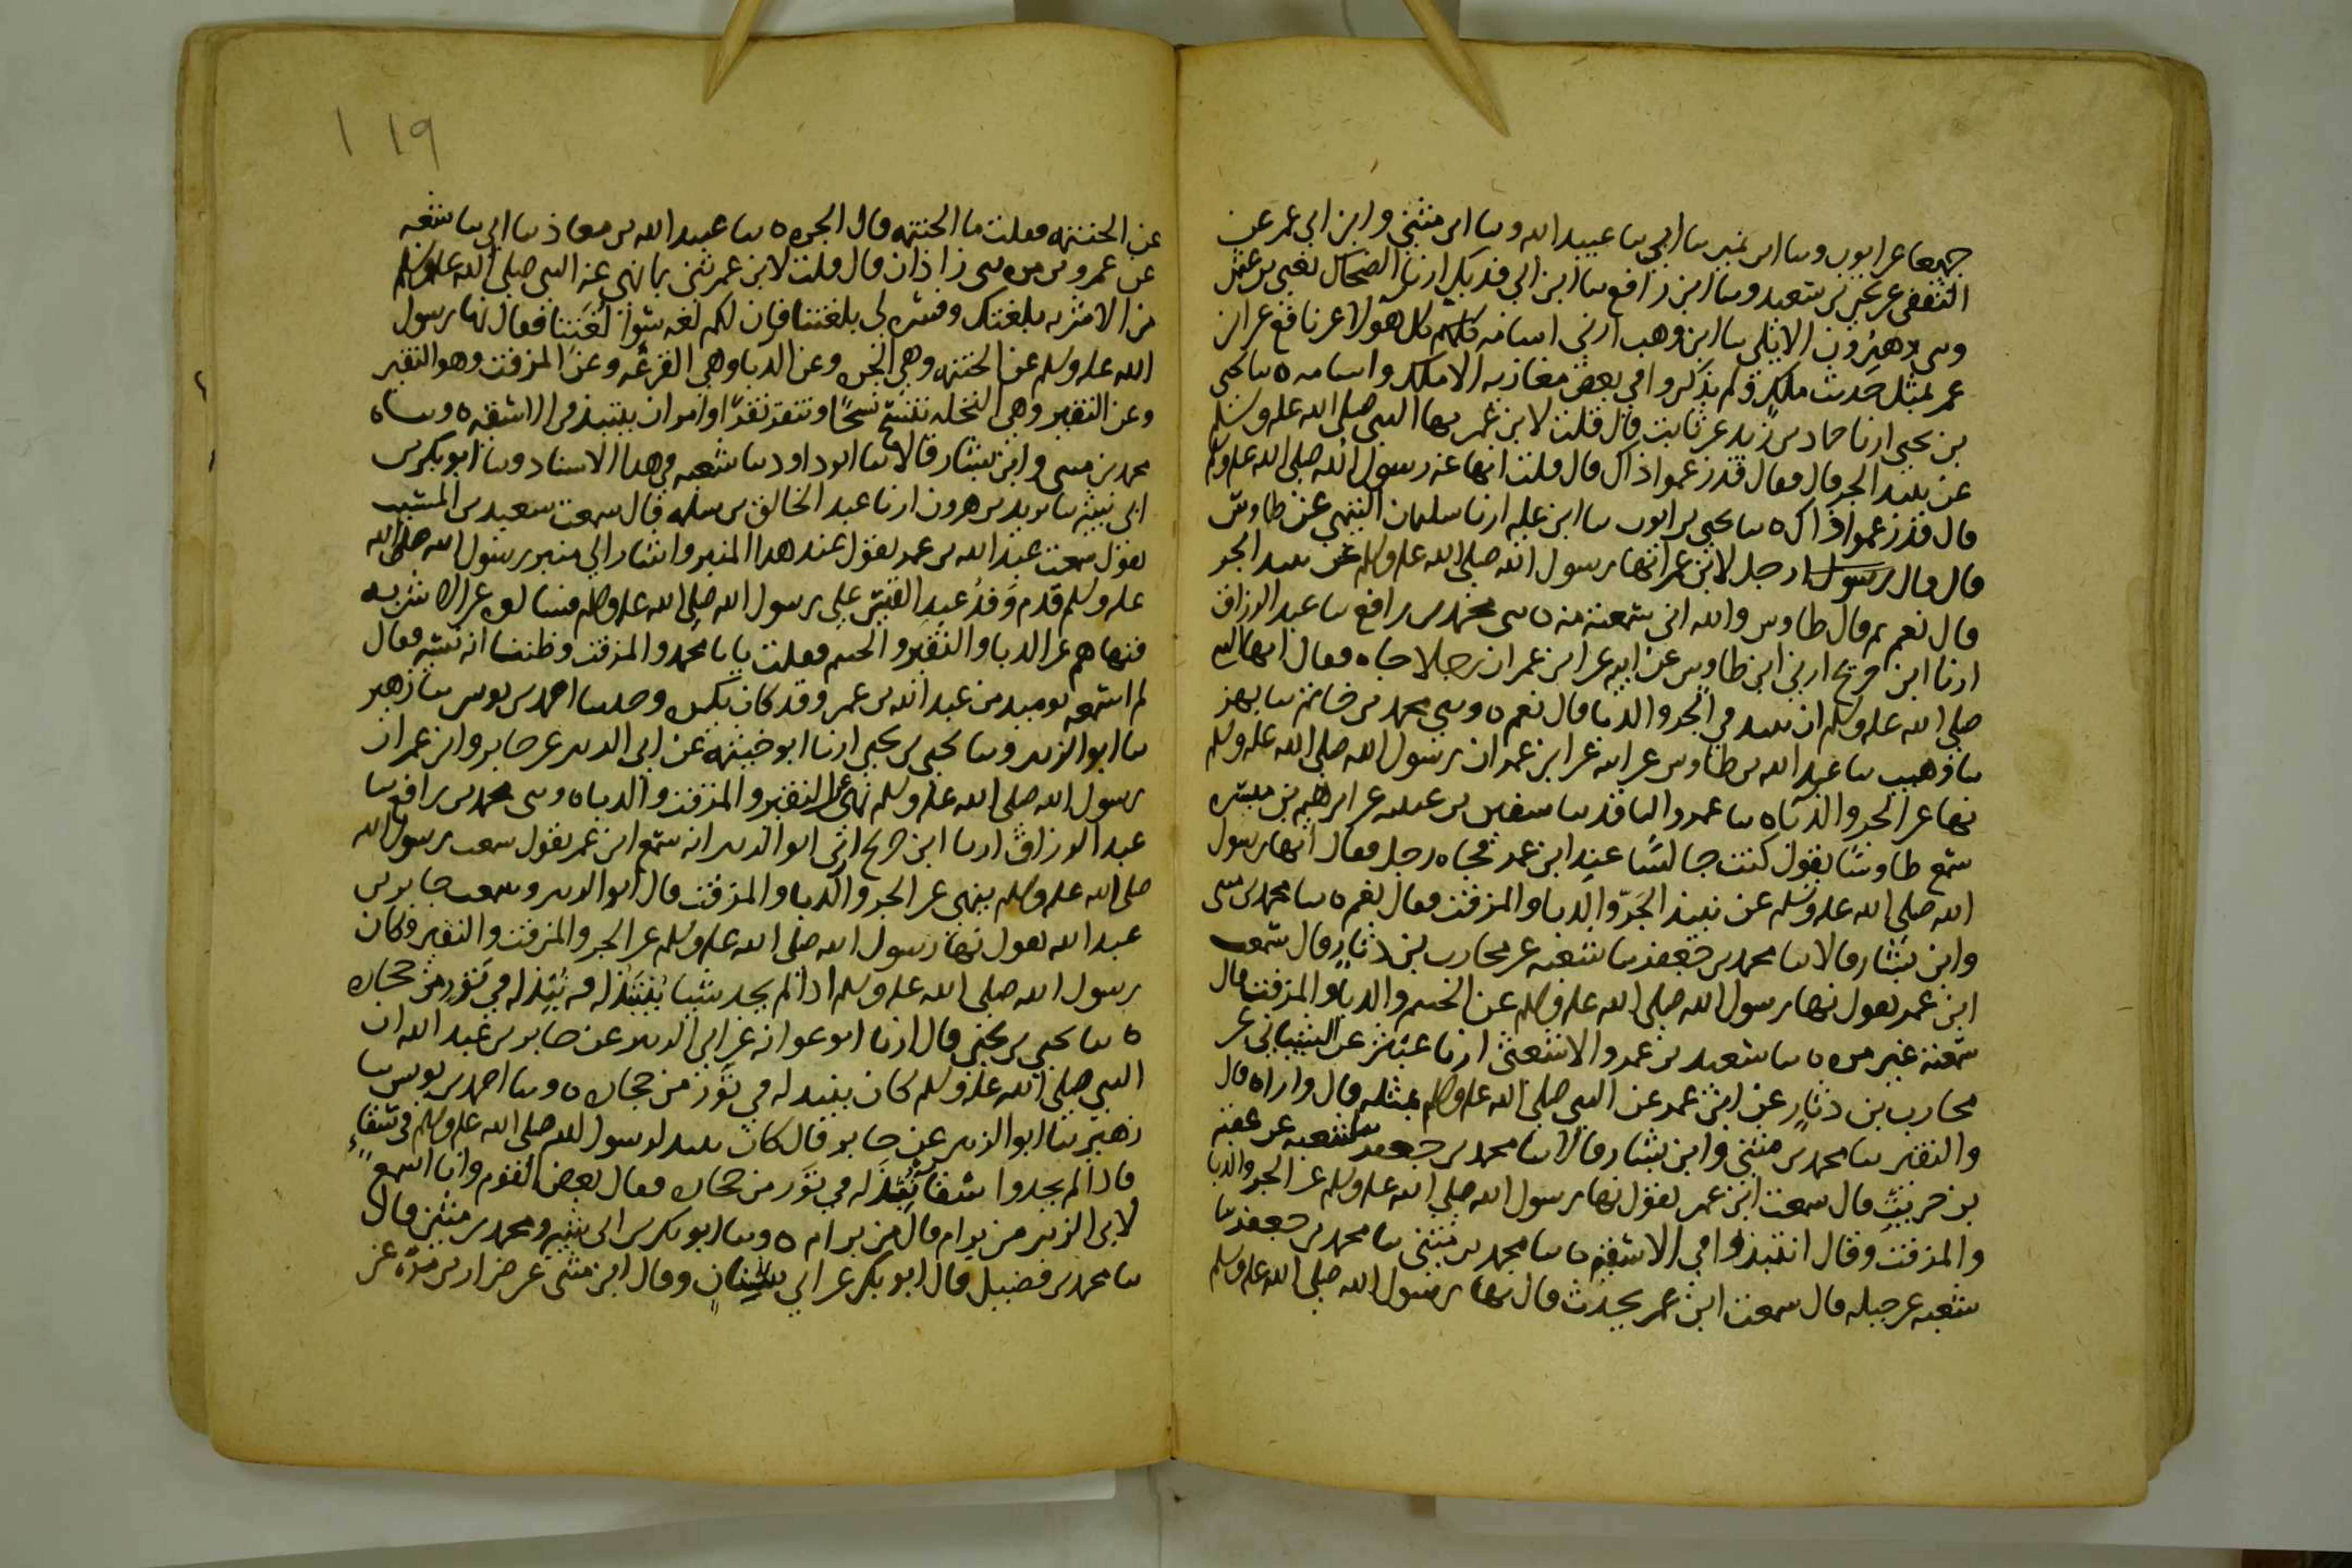 جميعا عن ايوب وسا ابن نمير سا ابي سا عبيد الله وسا ابن مثنى وابن ابي عمر عن
الثقفي عن يحيى بن سعيد وسا ابن رافع سا ابن ابي فديك ارنا الضحاك يعني بن عثمن
وسى هرون الايلي سا ابن وهب ارني اسامه كلهم كل هولا عن نافع عن ابن
عمر بمثل حديث ملك ولم يذكروا في بعض مغازيه الا ملك واسامه ٥ سا يحيى
بن يحيى ارنا حماد بن زيد عن ثابت قال قلت لابن عمر نها النبي صلى الله عليه وسلم
عن نبيذ الجر قال فقال قد زعموا ذاك قال قلت انها عنه رسول الله صلى الله عليه وسلم
قال قد زعموا ذاك ٥ سا يحيى بن ايوب سا ابن عليه ارنا سليمان التيمي عن طاوس
قال قال رجل لابن عمر انها رسول الله صلى الله عليه وسلم عن نبيذ الجر
قال نعم ثم قال طاوس والله اني سمعته منه ٥ سى محمد بن رافع سا عبد الرزاق
ارنا ابن جريج ارني ابن طاوس عن ابيه عن ابن عمر ان رجلا جاه فقال انها النبي
صلى الله عليه وسلم ان ينبذ في الجر والدبا قال نعم ٥ وسى محمد بن حاتم سا بهز
سا وهيب سا عبد الله بن طاوس عن ابيه عن ابن عمر ان رسول الله صلى الله عليه وسلم
نها عن الجر والدباه سا عمرو الناقد سا سفين بن عيينه عن ابراهيم بن ميسره
سمع طاوسا يقول كنت جالسا عند ابن عمر فجاه رجل فقال انها رسول
الله صلى الله عليه وسلم عن نبيذ الجر والدبا والمزفت فقال نعم ٥ سا محمد بن مثنى
وابن بشار قالا سا محمد بن جعفر سا شعبه عن محارب بن دثار قال سمعت
ابن عمر يقول نها رسول الله صلى الله عليه وسلم عن الحنتم والدبا والمزفت قال
سمعته غير مره ٥ سا سعيد بن عمرو الاشعثي ارنا عبثر عن الشيباني عن
محارب بن دثار عن ابن عمر عن النبي صلى الله عليه وسلم بمثله قال واراه قال
والنقير سا محمد بن مثنى وابن بشار قالا سا محمد بن جعفر سا شعبه عن عقبه
بن حريث قال سمعت ابن عمر يقول نها رسول الله صلى الله عليه وسلم عن الجر والدبا
والمزفت وقال انتبذوا في الاسقيه ٥ سا محمد بن مثنى سا محمد بن جعفر سا
شعبه عن جبله قال سمعت ابن عمر يحدث قال نها رسول الله صلى الله عليه وسلم
١١٩
عن الحنتمه فقلت ما الحنتمه قال الجره ٥ سا عبيد الله بن معاذ سا ابي سا شعبه
عن عمرو بن مره سى زاذان قال قلت لابن عمر حدثني بما نهى عنه النبي صلى الله عليه وسلم
من الاشربه بلغتك وفسره لي بلغتنا فان لكم لغه سوا لغتنا فقال نها رسول
الله عليه وسلم عن الحنتمه وهي الجره وعن الدبا وهي القرعه وعن المزفت وهو المقير
وعن النقير وهي النخله تنسح نسحا وتنقر نقرا وامر ان ينتبذ في الاسقيه ٥ وساه
محمد بن مثنى وابن بشار قالا سا ابو داود سا شعبه في هذا الاسناد وسا ابو بكر بن
ابي شيبه سا يزيد بن هرون ارنا عبد الخالق بن سلمه قال سمعت سعيد بن المسيب
يقول سمعت عبد الله بن عمر يقول عند هذا المنبر واشار الى منبر رسول الله صلى الله
عليه وسلم قدم وفد عبد القيس على رسول الله صلى الله عليه وسلم فسالوه عن الاشربه
فنهاهم عن الدبا والنقير والحنتم فقلت يابا محمد والمزفت وظننا انه نسيه فقال
لم اسمعه يوميذ من عبد الله بن عمر وقد كان يكره وحدثنا احمد بن يونس سا زهير
سا ابو الزبير وسا يحيى بن يحيى ارنا ابو خيثمه عن ابي الزبير عن جابر وابن عمر ان
رسول الله صلى الله عليه وسلم نهى عن النقير والمزفت والدباه وسى محمد بن رافع سا
عبد الرزاق ارنا ابن جريج ارني ابو الزبير انه سمع ابن عمر يقول سمعت رسول الله
صلى الله عليه وسلم ينهى عن الجر والدبا والمزفت قال ابو الزبير وسمعت جابر بن
عبد الله يقول نها رسول الله صلى الله عليه وسلم عن الجر والمزفت والنقير وكان
رسول الله صلى الله عليه وسلم اذا لم يجد شيا ينتبذ له فيه نبذ له في تور من حجاره
٥ سا يحيى بن يحيى قال ارنا ابو عوانه عن ابي الزبير عن جابر بن عبد الله ان
النبي صلى الله عليه وسلم كان ينبذ له في تور من حجاره ٥ وسا احمد بن يونس سا
زهير سا ابو الزبير عن جابر قال كان ينبذ لرسول الله صلى الله عليه وسلم في سقاء
فاذا لم يجدوا سقا نبذ له في تور من حجاره فقال بعض القوم وانا اسمع
لابي الزبير من برام قال من برام ٥ وسا ابو بكر بن ابي شيبه ومحمد بن مثنى قال
سا محمد بن فضيل قال ابو بكر عن ابي سنان وقال ابن مثنى عن ضرار بن مره عن